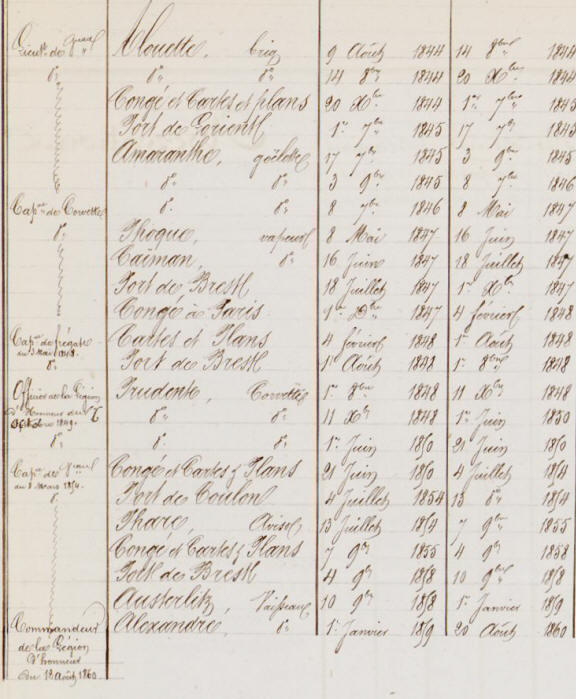 Lieut. de Vaiss. Alouette, brig 9 Août 1844 14 8bre 1844
d° d° d° 14 8bre 1844 20 Xbre 1844
Congé et Cartes et plans 20 Xbre 1844 1er 7bre 1845
Port de Lorient 1er 7bre 1845 17 7bre 1845
Amaranthe, goëlette 17 7bre 1845 3 9bre 1845
d° d° 3 9bre 1845 8 7bre 1846
Capne de Corvette d° d° 8 7bre 1846 8 Mai 1847
d° Phoque, vapeur 8 Mai 1847 16 Juin 1847
Caïman, d° 16 Juin 1847 18 Juillet 1847
Port de Brest 18 Juillet 1847 1er Xbre 1847
Congé à Paris 1er Xbre 1847 4 février 1848
Capne de frégate Cartes et Plans 4 février 1848 1er Août 1848
du 3 Mai 1848.
d° Port de Brest 1er Août 1848 1er 8bre 1848
Officier de la Légion Prudente, Corvette 1er 8bre 1848 11 Xbre 1848
d'Honneur du
1849. d° d° 11 Xbre 1848 1er Juin 1850
d° d° d° 1er Juin 1850 21 Juin 1850
Capne de Vaiss. Congé et Cartes & Plans 21 Juin 1850 4 Juillet 1854
du 8 Mars 1854.
d° Port de Toulon 4 Juillet 1854 13 d° 1854
Phare, Aviso 13 Juillet 1854 7 9bre 1855
Congé et Cartes & Plans 7 9bre 1855 4 9bre 1858
Port de Brest 4 9bre 1858 10 9bre 1858
Austerlitz, Vaisseau 10 9bre 1858 1er Janvier 1859
Commandeur Alexandre, d° 1er Janvier 1859 20 Août 1860
de la Légion
d'honneur
du 12 Août 1860